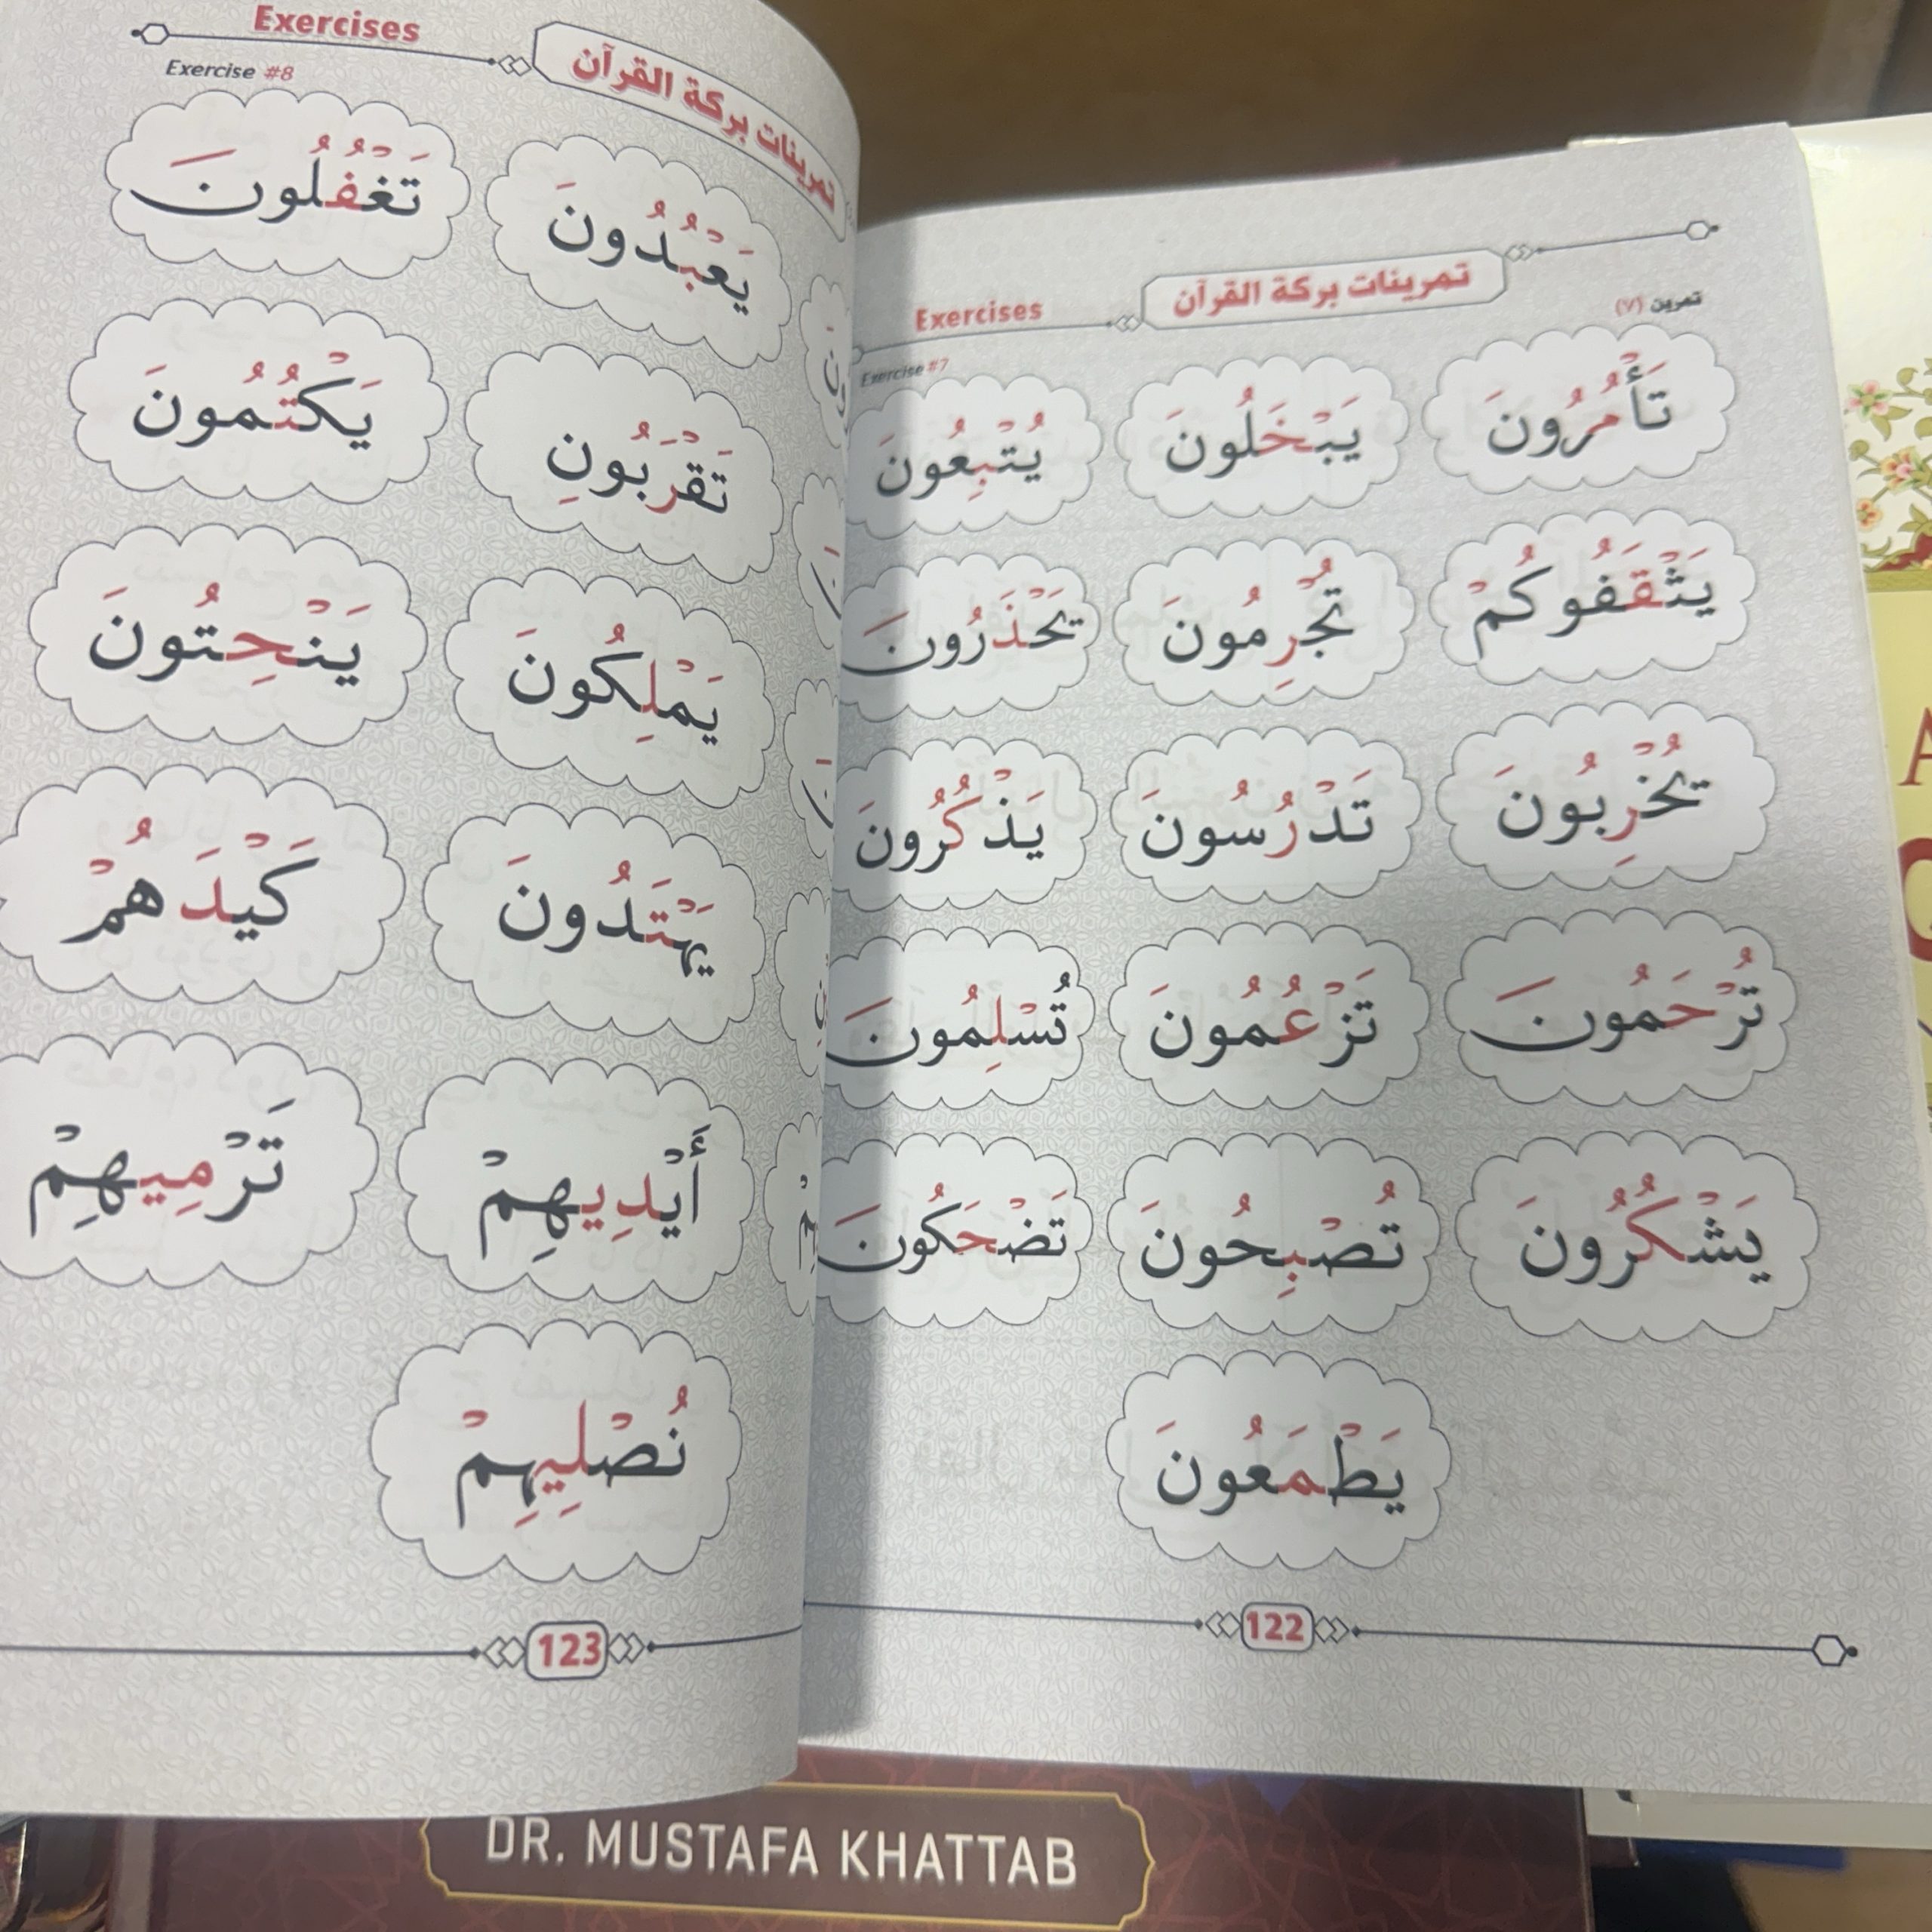 تمرينات بركة القرآن Exercises
تمرين (٧) Exercise #7
تَأْمُرُونَ يَبْخَلُونَ يُتْبِعُونَ
يَثْقَفُوكُمْ تُجْرِمُونَ يَحْذَرُونَ
يُخْرِبُونَ تَدْرُسُونَ يَذْكُرُونَ
تُرْحَمُونَ تَزْعُمُونَ تُسْلِمُونَ
يَشْكُرُونَ تُصْبِحُونَ تَضْحَكُونَ
يَطْمَعُونَ
122
تمرينات بركة القرآن Exercises
Exercise #8
يَعْبُدُونَ تَغْفُلُونَ
تَقْرَبُونِ يَكْتُمُونَ
يَمْلِكُونَ يَنْحِتُونَ
يَهْتَدُونَ كَيْدَهُمْ
أَيْدِيهِمْ تَرْمِيهِمْ
نُصْلِيهِمْ
123
DR. MUSTAFA KHATTAB